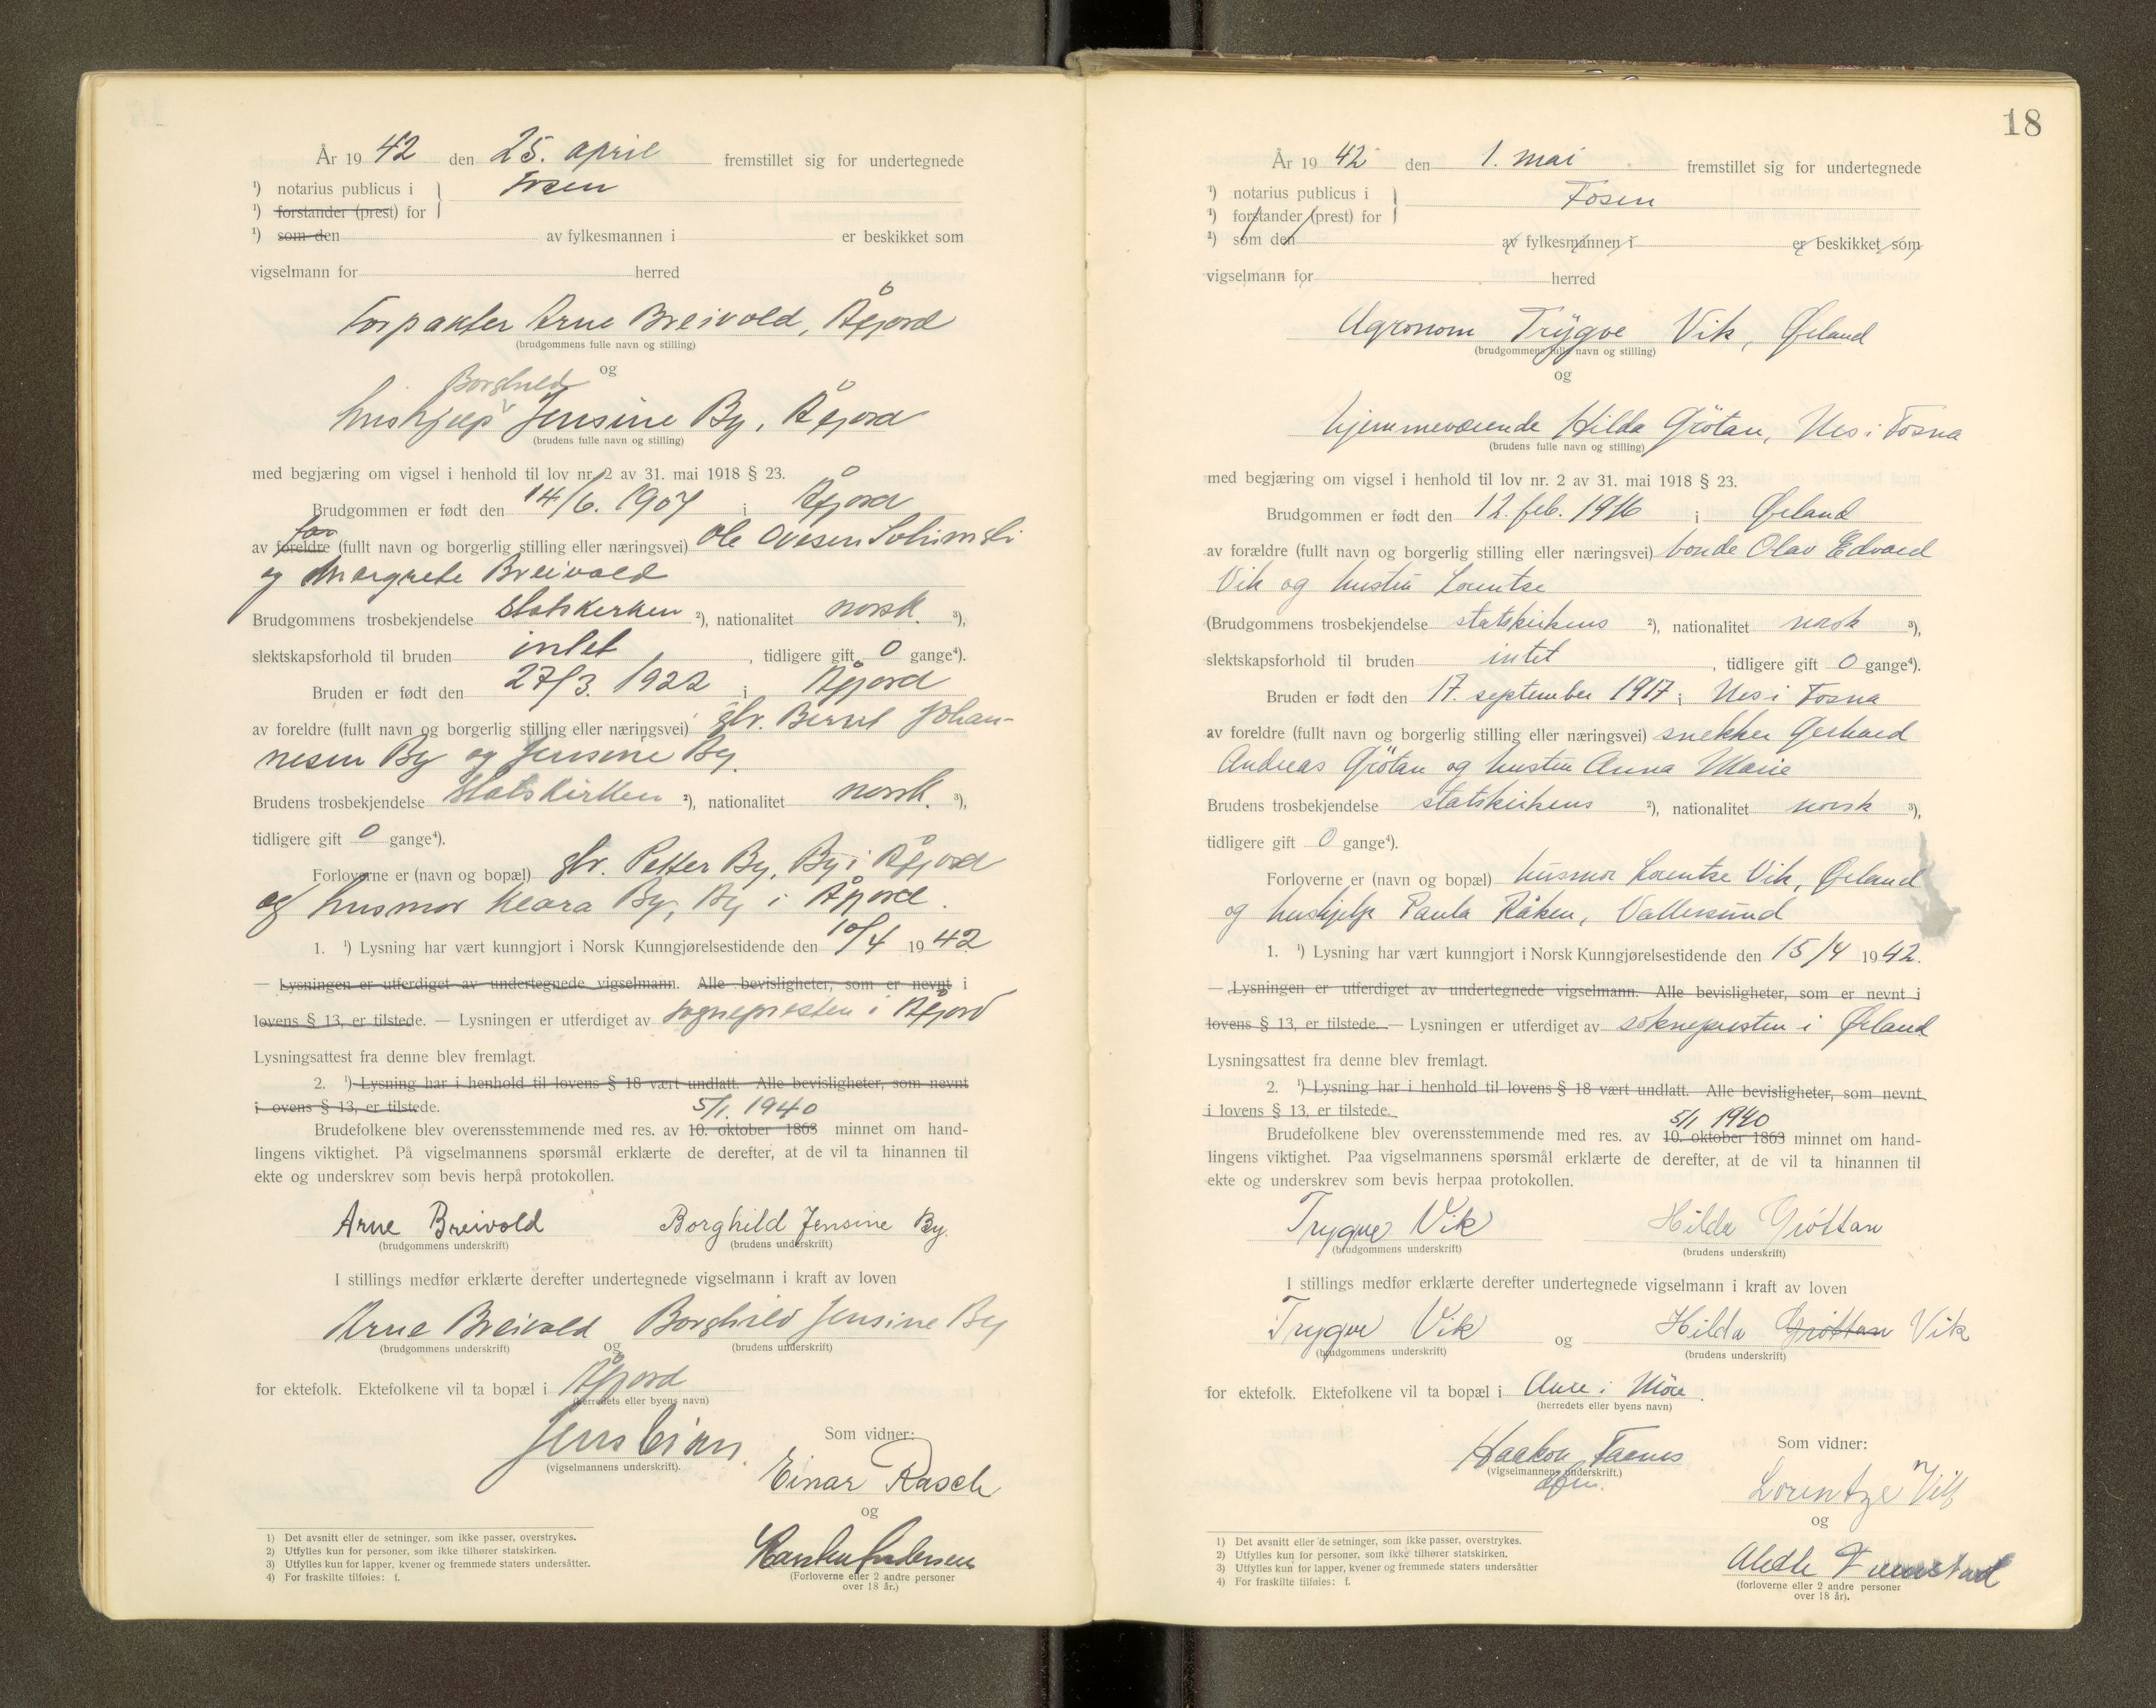 År 19 42 den 25. april fremstillet sig for undertegnede
¹) notarius publicus i } Fosen
¹) forstander (prest) for
¹) som den av fylkesmannen i er beskikket som
vigselmann for herred
Forpakter Arne Breivold, Åfjord
(brudgommens fulle navn og stilling)
og
Borghild
hushjelp Jensine By, Åfjord
(brudens fulle navn og stilling)
med begjæring om vigsel i henhold til lov nr. 2 av 31. mai 1918 § 23.
Brudgommen er født den 14/6. 1907 i Åfjord
av foreldre (fullt navn og borgerlig stilling eller næringsvei) Ole Ovesen
og Margrete Breivold
Brudgommens trosbekjendelse Statskirken ²), nationalitet norsk. ³),
slektskapsforhold til bruden intet, tidligere gift 0 gange⁴).
Bruden er født den 27/3. 1922 i Åfjord
av foreldre (fullt navn og borgerlig stilling eller næringsvei) gbr. Bernt Johan-
nesen By og Jensine By.
Brudens trosbekjendelse Statskirken ²), nationalitet norsk. ³),
tidligere gift 0 gange⁴).
Forloverne er (navn og bopæl) gbr. Petter By, By i Åfjord
og husmor Klara By, By i Åfjord.
1. ¹) Lysning har vært kunngjort i Norsk Kunngjørelsestidende den 10/4 1942
— Lysningen er utferdiget av undertegnede vigselmann. Alle bevisligheter, som er nevnt i
lovens § 13, er tilstede. — Lysningen er utferdiget av sognepresten i Åfjord
Lysningsattest fra denne blev fremlagt.
2. ¹) Lysning har i henhold til lovens § 18 vært undlatt. Alle bevisligheter, som nevnt
i ovens § 13, er tilstede.
5/1. 1940
Brudefolkene blev overensstemmende med res. av 10. oktober 1863 minnet om hand-
lingens viktighet. På vigselmannens spørsmål erklærte de derefter, at de vil ta hinannen til
ekte og underskrev som bevis herpå protokollen.
Arne Breivold Borghild Jensine By.
(brudgommens underskrift) (brudens underskrift)
I stillings medfør erklærte derefter undertegnede vigselmann i kraft av loven
Arne Breivold Borghild Jensine By
(brudgommens underskrift) og (brudens underskrift)
for ektefolk. Ektefolkene vil ta bopæl i Åfjord
(herredets eller byens navn)
Jens
(vigselmannens underskrift).
Som vidner:
Einar Rasch
og
Karsten Andersen
(Forloverne eller 2 andre personer
over 18 år.)
1) Det avsnitt eller de setninger, som ikke passer, overstrykes.
2) Utfylles kun for personer, som ikke tilhører statskirken.
3) Utfylles kun for lapper, kvener og fremmede staters undersåtter.
4) For fraskilte tilføies: f.
18
År 19 42 den 1. mai fremstillet sig for undertegnede
¹) notarius publicus i } Fosen
¹) forstander (prest) for
¹) som den av fylkesmannen i er beskikket som
vigselmann for herred
Agronom Trygve Vik, Ørland
(brudgommens fulle navn og stilling)
og
hjemmeværende Hilda Grötan, Nes i Fosna
(brudens fulle navn og stilling)
med begjæring om vigsel i henhold til lov nr. 2 av 31. mai 1918 § 23.
Brudgommen er født den 12. feb. 1916 i Ørland
av forældre (fullt navn og borgerlig stilling eller næringsvei) bonde Olav Edvard
Vik og hustru Lorentse
(Brudgommens trosbekjendelse statskirkens ²), nationalitet norsk ³),
slektskapsforhold til bruden intet, tidligere gift 0 gange⁴).
Bruden er født den 17. september 1917 i Nes i Fosna
av foreldre (fullt navn og borgerlig stilling eller næringsvei) snekker Gerhard
Andreas Grötan og hustru Anna Marie
Brudens trosbekjendelse statskirkens ²), nationalitet norsk ³),
tidligere gift 0 gange⁴).
Forloverne er (navn og bopæl) husmor Lorentse Vik, Ørland
og hushjelp Paula Råken, Vallersund
1. ¹) Lysning har vært kunngjort i Norsk Kunngjørelsestidende den 15/4 1942.
— Lysningen er utferdiget av undertegnede vigselmann. Alle bevisligheter, som er nevnt i
lovens § 13, er tilstede. — Lysningen er utferdiget av soknepresten i Ørland
Lysningsattest fra denne blev fremlagt.
2. ¹) Lysning har i henhold til lovens § 18 vært undlatt. Alle bevisligheter, som nevnt
i lovens § 13, er tilstede.
5/1 1940
Brudefolkene blev overensstemmende med res. av 10. oktober 1863 minnet om hand-
lingens viktighet. Paa vigselmannens spørsmål erklærte de derefter, at de vil ta hinannen til
ekte og underskrev som bevis herpaa protokollen.
Trygve Vik Hilda Grøttan
(brudgommens underskrift) (brudens underskrift)
I stillings medfør erklærte derefter undertegnede vigselmann i kraft av loven
Trygve Vik og Hilda Grøttan Vik
(brudgommens underskrift) (brudens underskrift)
for ektefolk. Ektefolkene vil ta bopæl i Aure i Møre
(herredets eller byens navn)
Haakon
(vigselmannens underskrift.)
Som vidner:
Lorentze Vik
og
(forloverne eller 2 andre personer
over 18 år).
1) Det avsnitt eller de setninger, som ikke passer, overstrykes.
2) Utfylles kun for personer, som ikke tilhører statskirken.
3) Utfylles kun for lapper, kvener og fremmede staters undersåtter
4) For fraskilte tilføies: f.